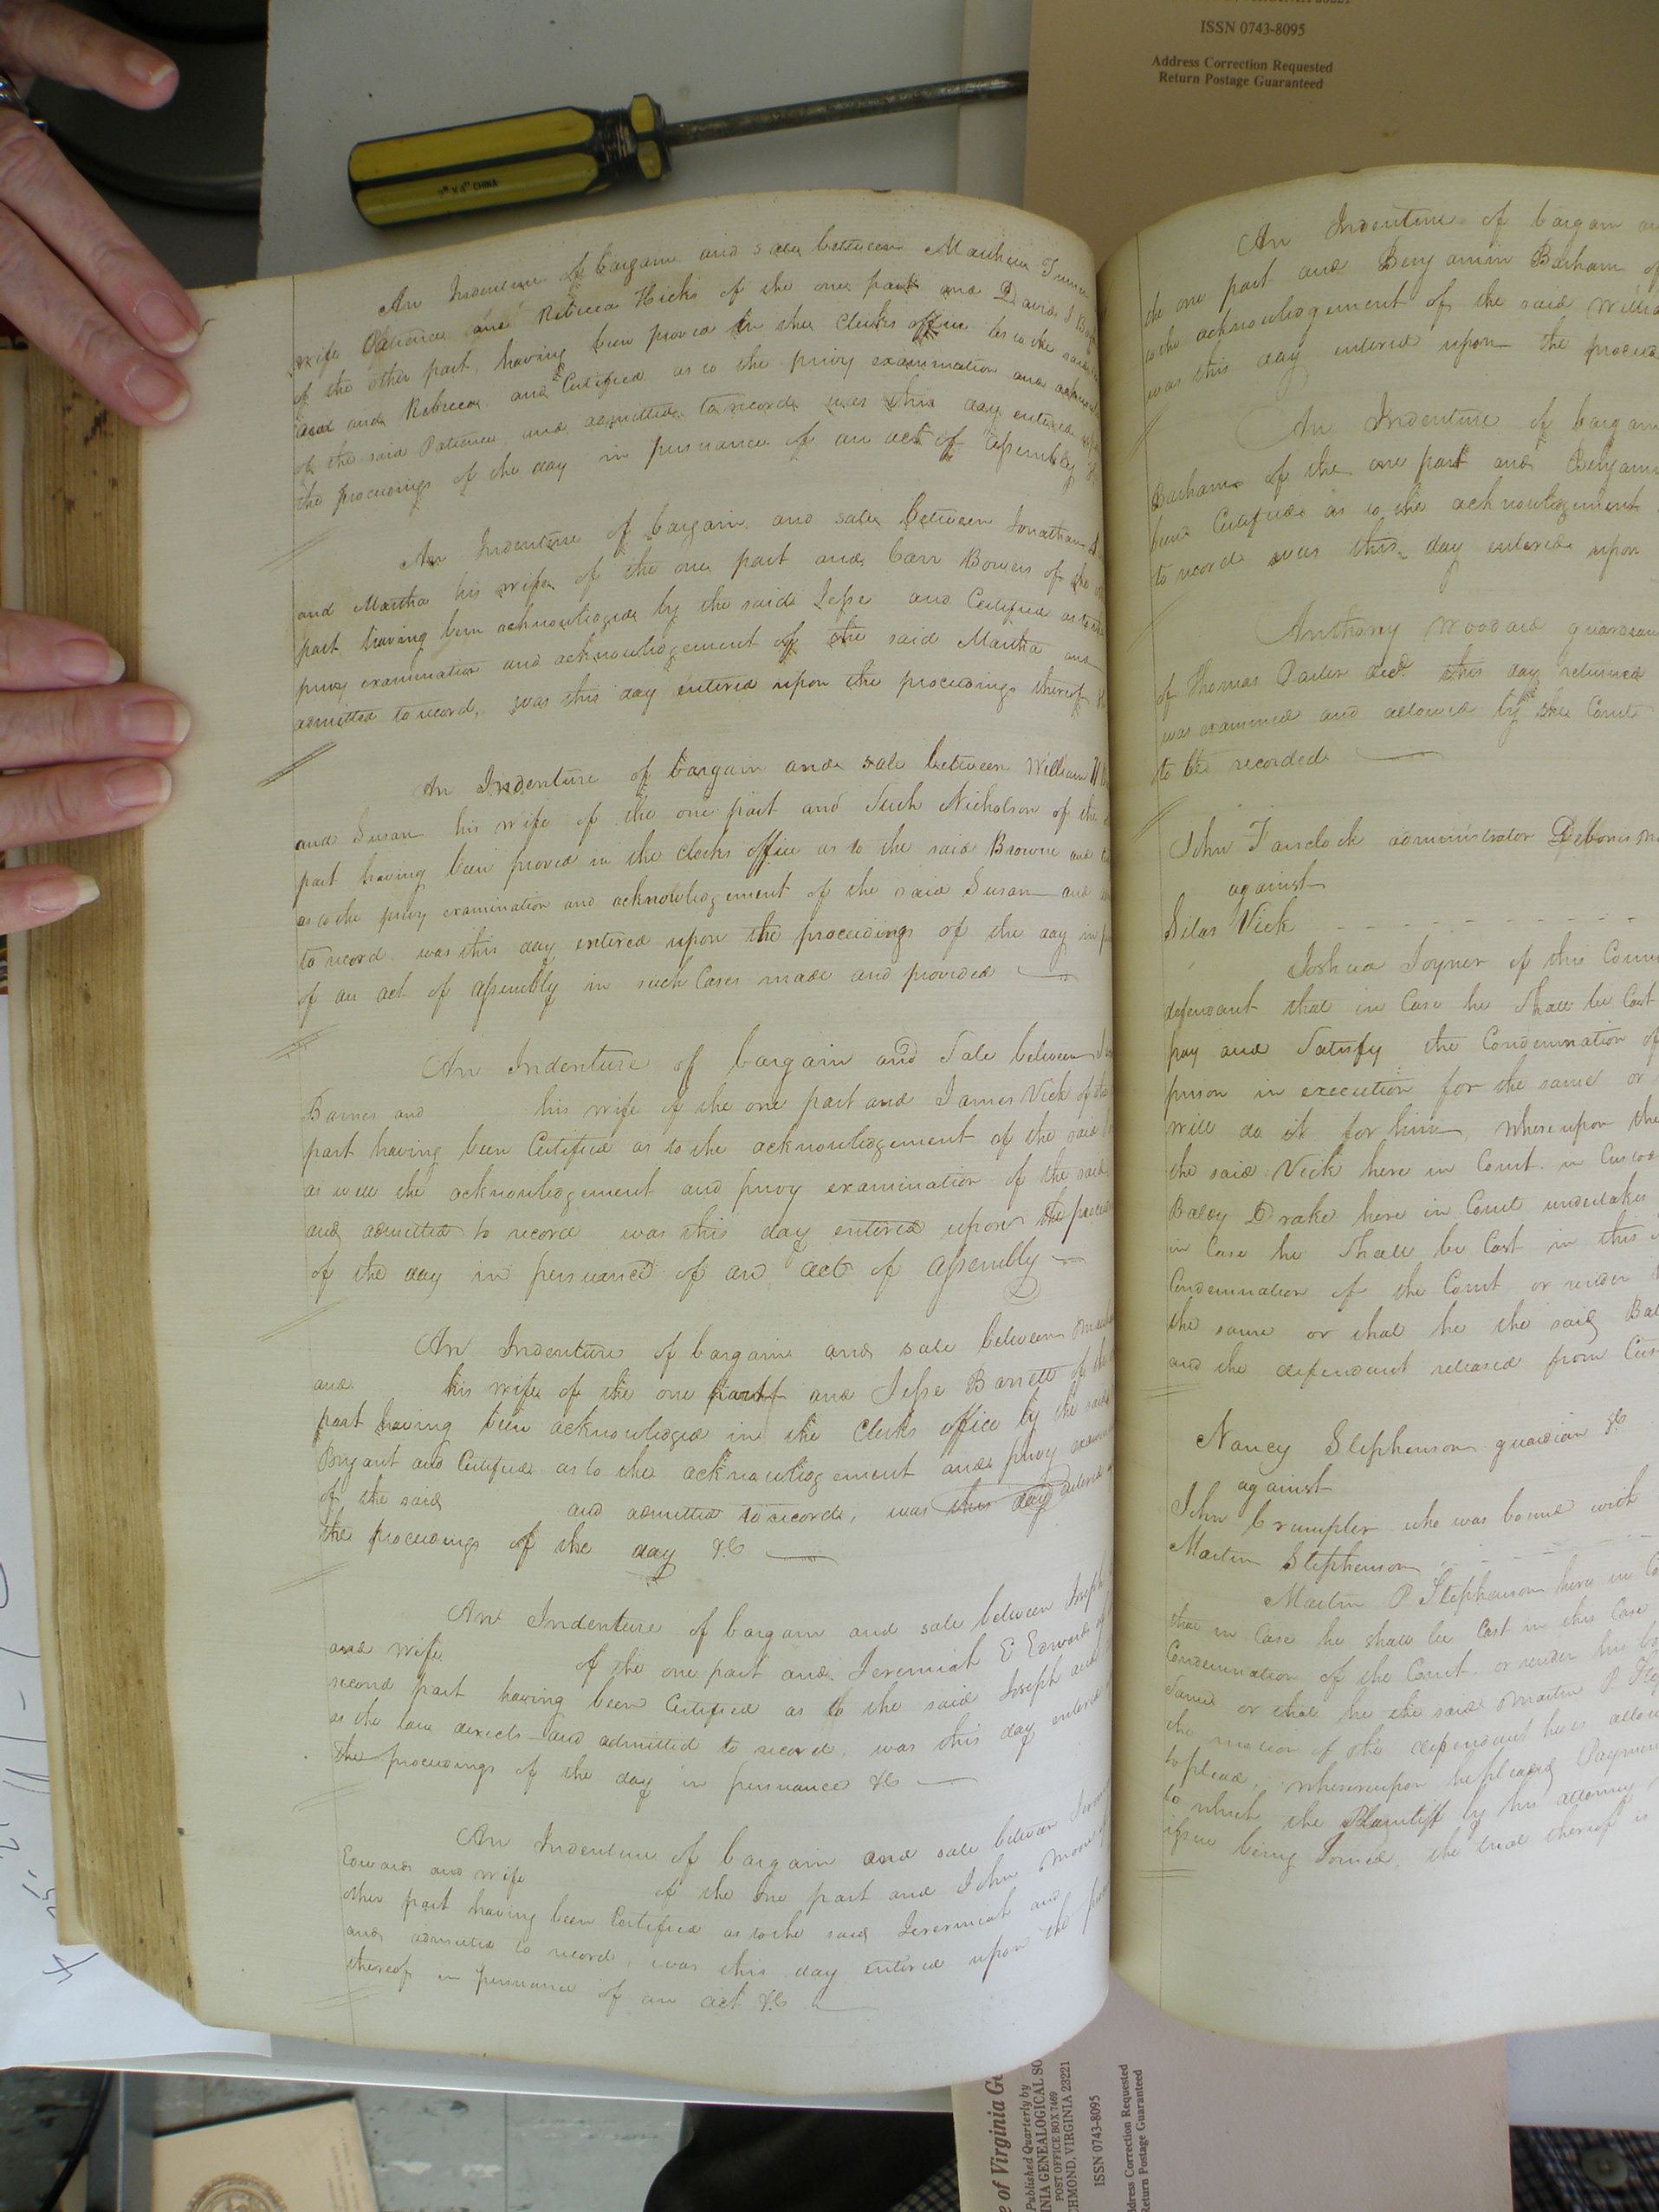 ISSN 0743-8095
Address Correction Requested
Return Postage Guaranteed
CHINA
An Indenture of bargain and sale between Mathew
wife Patience and Rebecca Hicks of the one part and David J
of the other part, having been proved in the Clerks office as to the said
and Rebecca and Certified as to the privy examination and
of the said Patience and admitted to record was this day entered
the proceedings of the day in persuance of an act of assembly &c
An Indenture of bargain and sale between Jonathan
and Martha his wife of the one part and Carr Bowers of the
part having been acknowledged by the said Jesse and Certified as to the
privy examination and acknowledgement of the said Martha and
admitted to record, was this day entered upon the proceedings thereof
An Indenture of bargain and sale between William
and Susan his wife of the one part and Nicholson of the
part having been proved in the clerks office as to the said Browne and
as to the privy examination and acknowledgement of the said Susan and
to record was this day entered upon the proceedings of the day in
of an act of assembly in such Cases made and provided
An Indenture of bargain and Sale between
Barnes and his wife of the one part and James Vick of the
part having been Certified as to the acknowledgement of the said
as well the acknowledgement and privy examination of the said
and admitted to record was this day entered upon the
of the day in persuance of an act of assembly
An Indenture of bargain and sale between
and his wife of the one part and Jesse Barrett of the
part having been acknowledged in the Clerks office by the said
Bryant and Certified as to the acknowledgement and privy
of the said and admitted to record, was this day entered
the proceedings of the day &c
An Indenture of bargain and sale between Joseph
and wife of the one part and Jeremiah E Edwards of
second part having been Certified as to the said Joseph and
as the law directs and admitted to record, was this day entered
the proceedings of the day in persuance &c
An Indenture of bargain and sale between
Edwards and wife of the one part and John Moore
other part having been Certified as to the said Jeremiah and
and admitted to record, was this day entered upon the
thereof in persuance of an act &c
An Indenture of bargain
the one part and Benjamin Barham of
to the acknowledgement of the said
was this day entered upon the
An Indenture of bargain
Barham of the one part and
been Certified as to the acknowledgement
to record was this day entered upon
Anthony Woodard guardian
of Thomas decd. this day returned
was examined and allowed by the Court
to be recorded
John administrator
against
Silas Vick
Joshua Joyner of this
defendant that in Case he Shall be Cast
pay and Satisfy the Condemnation of
prison in execution for the same or
will do it for him, whereupon the
the said Vick here in Court in
Drake here in Court undertakes
in Case he Shall be Cast in this
Condemnation of the Court or render
the same or that he the said
and the defendant released from
Nancy Stephenson guardian &c
against
John Crumpler who was bound with
Martin Stephenson
Martin P Stephenson here in
that in Case he shall be Cast in this Case
Condemnation of the Court or render his
Same or that he the said Martin P.
the motion of the defendant he is
to plead, whereupon he pleaded
to which the Plaintiff by his attorney
issue being Joined, the trial thereof is
of Virginia
Published Quarterly by
GENEALOGICAL
POST OFFICE BOX 7469
VIRGINIA 23221
ISSN 0743-8095
Address Correction Requested
Return Postage Guaranteed